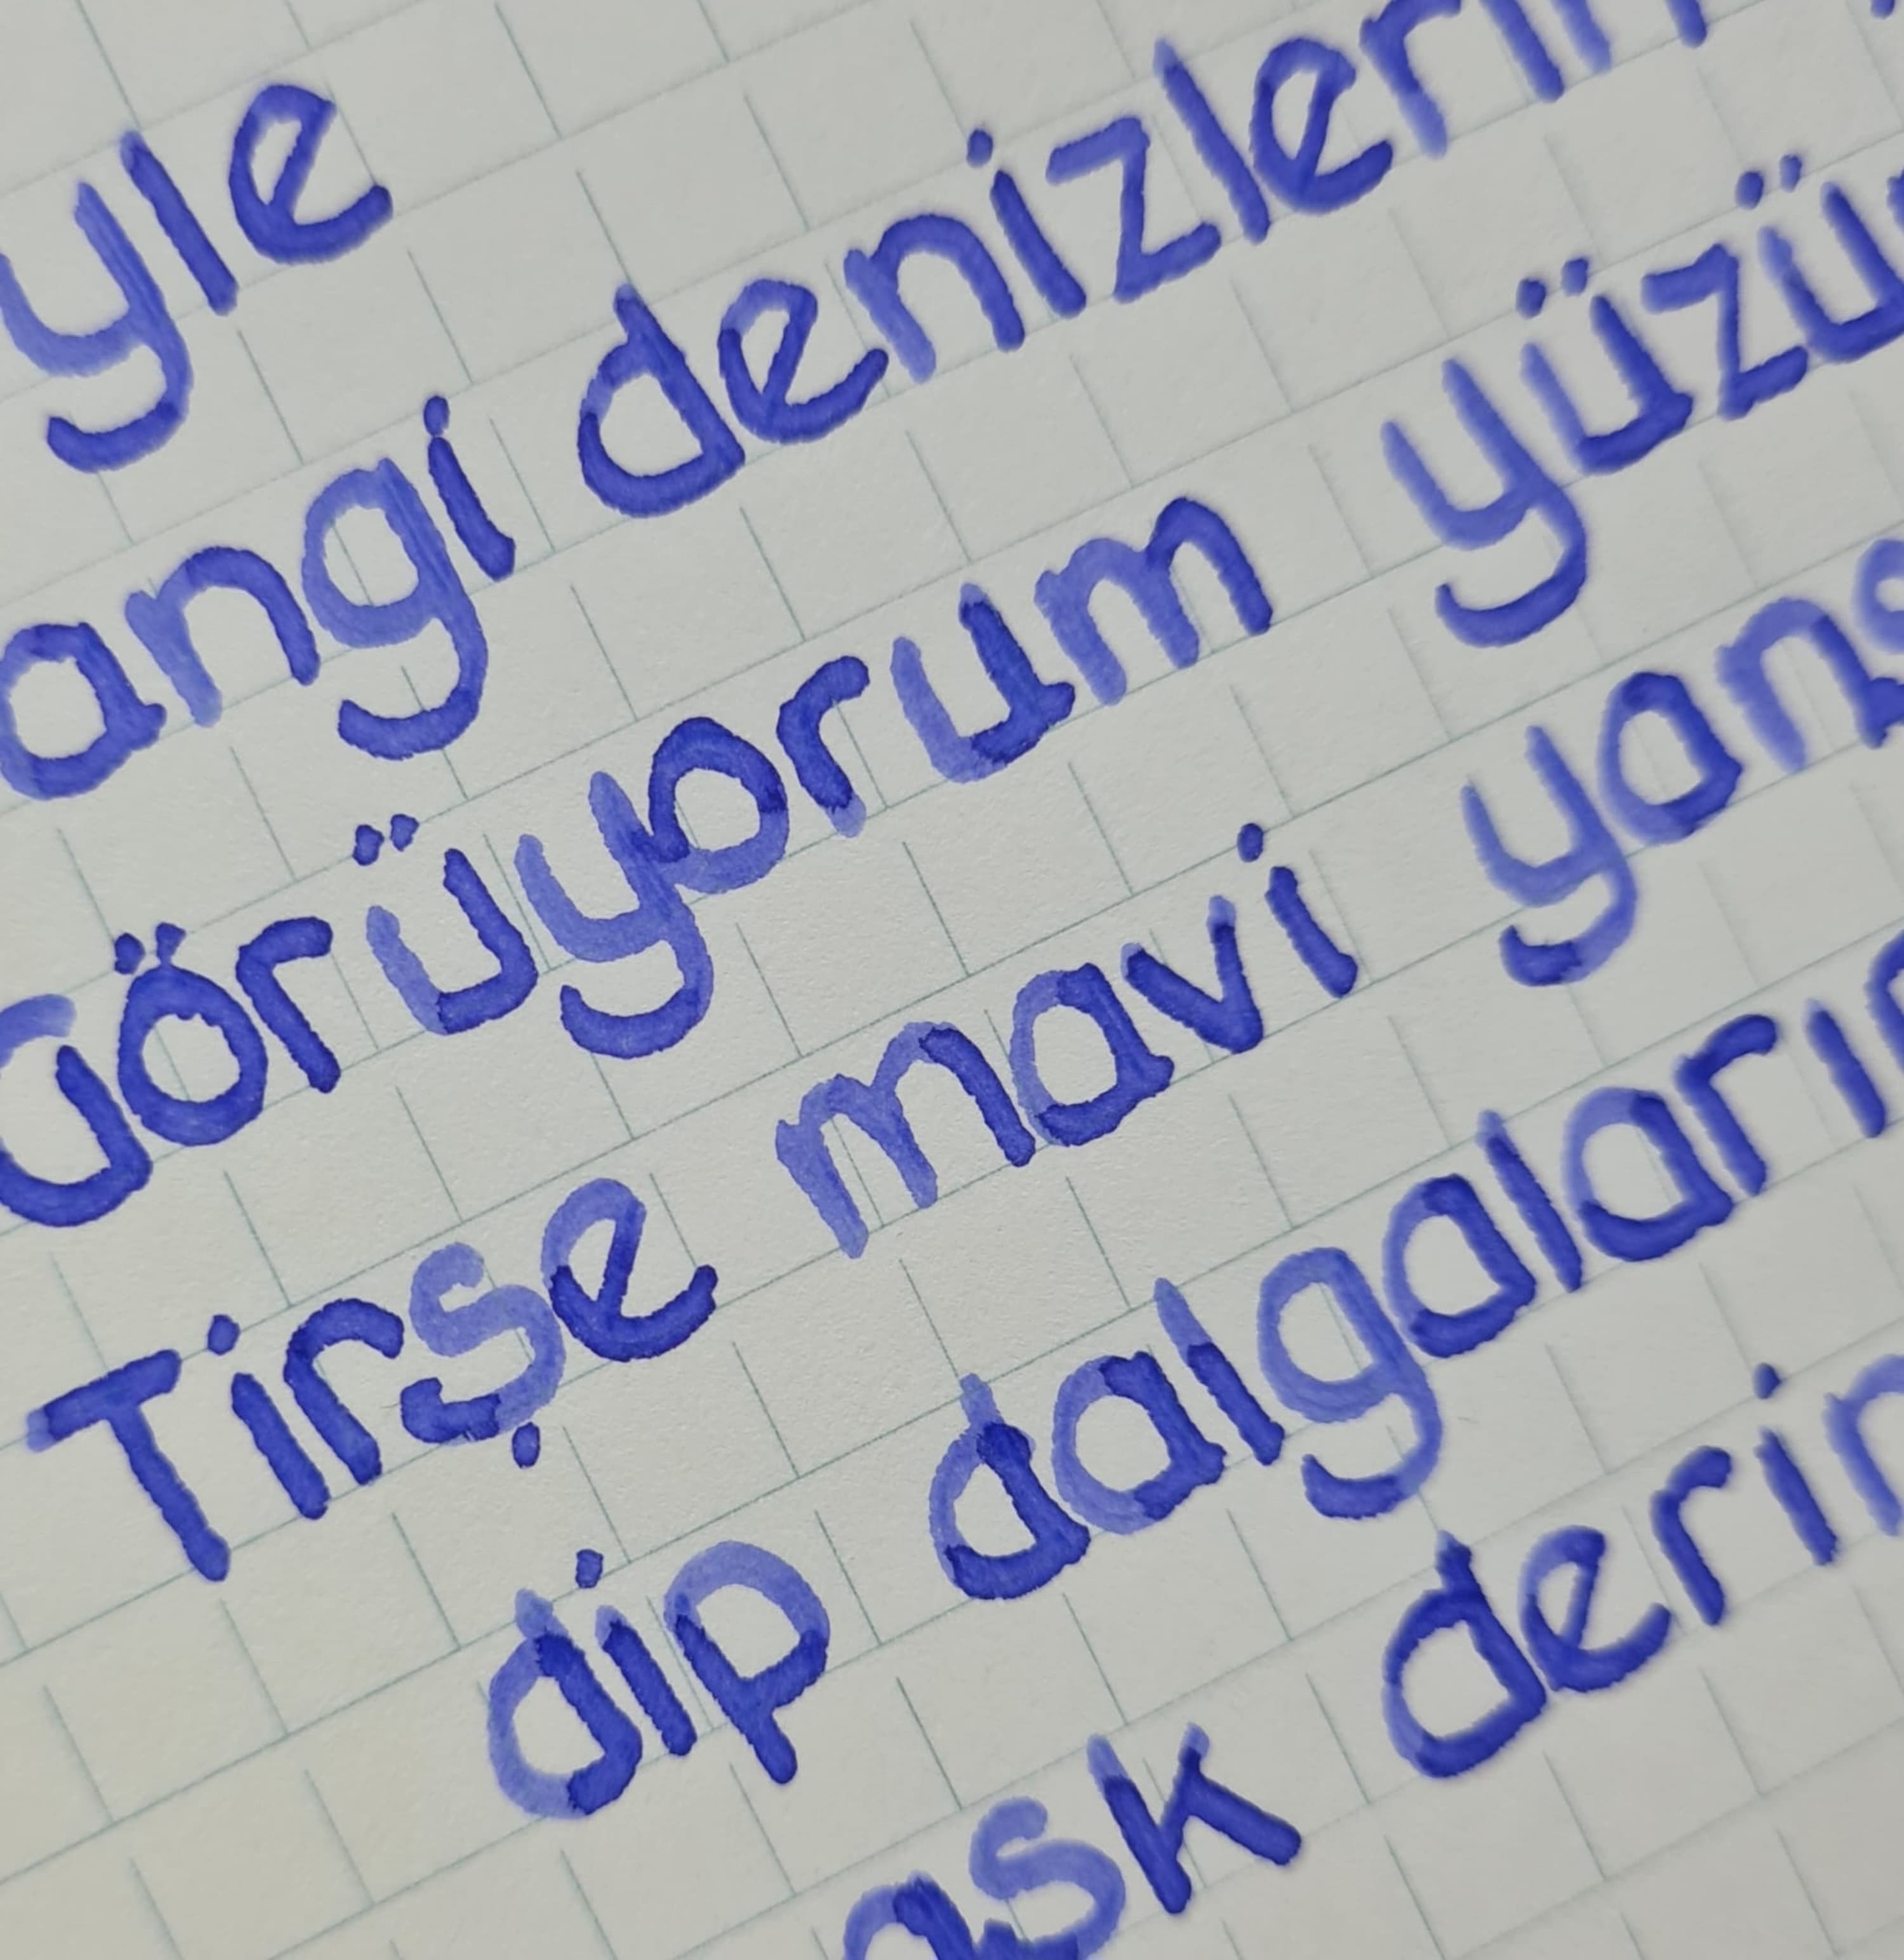 yle
angi denizlerin
Görüyorum yüzü
Tirşe mavi yans
dip dalgaların
aşk derin